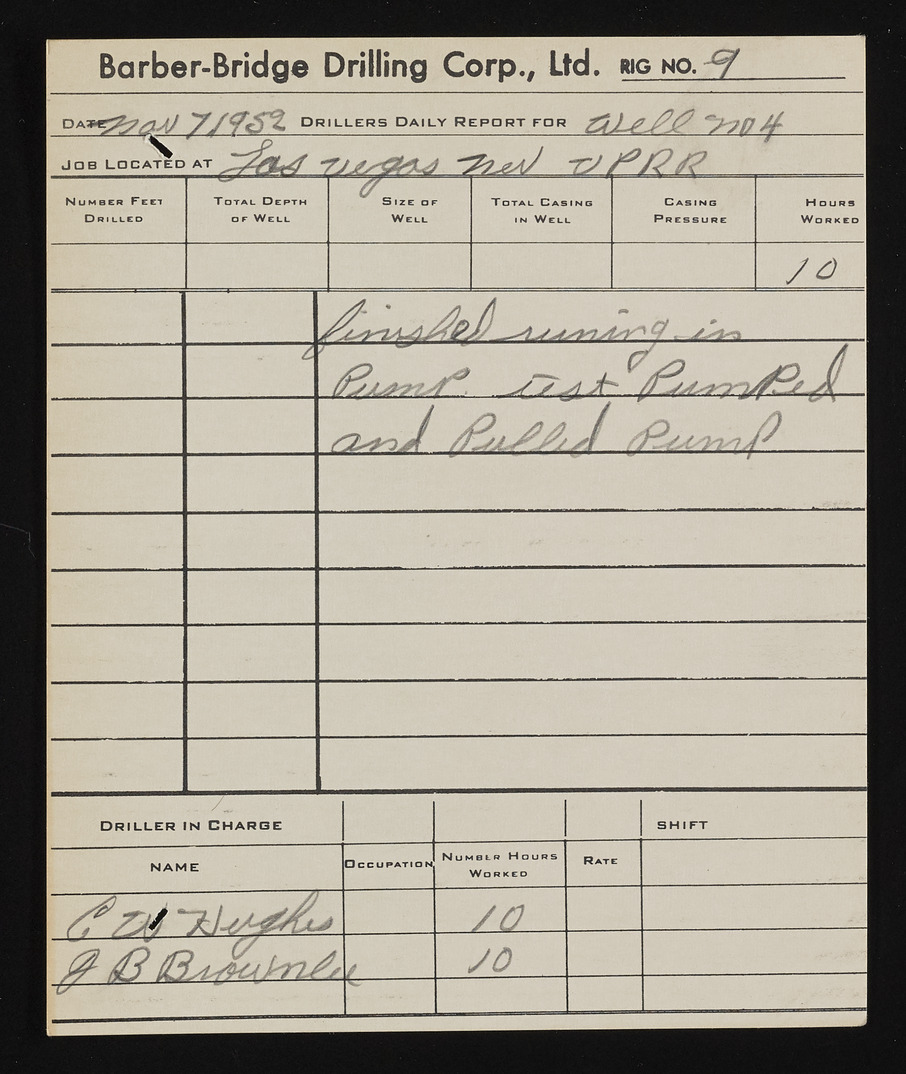 Barber-Bridge Drilling Corp., Ltd. RIG NO. 9
DATE Nov 7 1952 DRILLERS DAILY REPORT FOR Well No 4
JOB LOCATED AT Las Vegas Nev UPRR
NUMBER FEET DRILLED TOTAL DEPTH OF WELL SIZE OF WELL TOTAL CASING IN WELL CASING PRESSURE HOURS WORKED
10
finished runing in
Pump test Pumped
and Pulled Pump
DRILLER IN CHARGE SHIFT
NAME OCCUPATION NUMBER HOURS WORKED RATE
C W Hughes 10
J B Brownlee 10